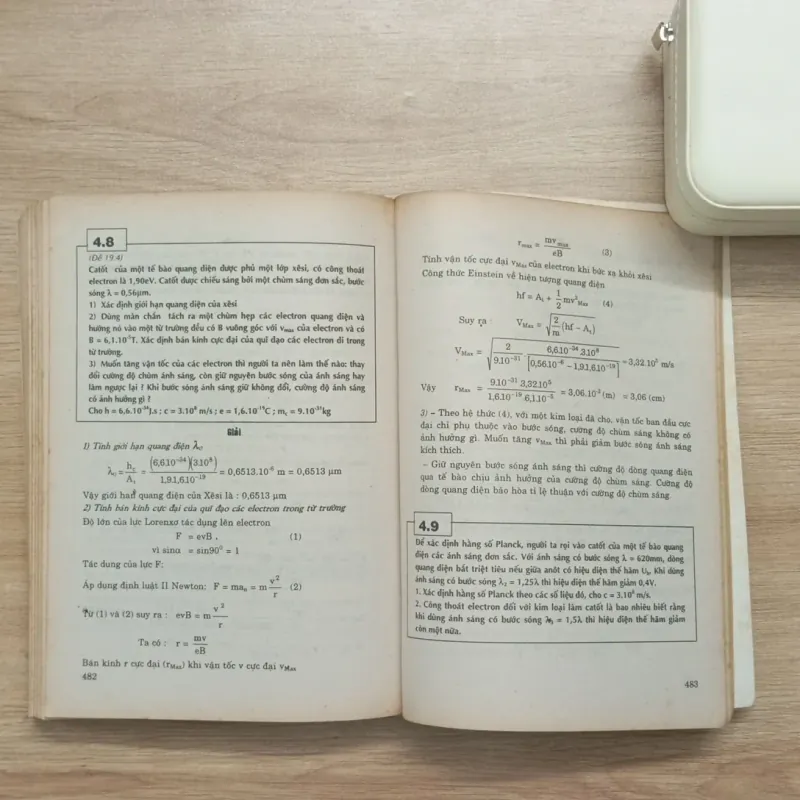 4.8
(Đề 19.4)
Catốt của một tế bào quang điện được phủ một lớp xêsi, có công thoát
electron là 1,90eV. Catốt được chiếu sáng bởi một chùm sáng đơn sắc, bước
sóng λ = 0,56μm.
1) Xác định giới hạn quang điện của xêsi
2) Dùng màn chắn tách ra một chùm hẹp các electron quang điện và
hướng nó vào một từ trường đều có B vuông góc với vmax của electron và có
B = 6,1.10⁻⁵T. Xác định bán kính cực đại của quĩ đạo các electron đi trong
từ trường.
3) Muốn tăng vận tốc của các electron thì người ta nên làm thế nào: thay
đổi cường độ chùm ánh sáng, còn giữ nguyên bước sóng của ánh sáng hay
làm ngược lại ? Khi bước sóng ánh sáng giữ không đổi, cường độ ánh sáng
có ảnh hưởng gì ?
Cho h = 6,6.10⁻³⁴J.s ; c = 3.10⁸ m/s ; e = 1,6.10⁻¹⁹C ; mₑ = 9.10⁻³¹kg
Giải
1) Tính giới hạn quang điện λ
= (6,6.10⁻³⁴)(3.10⁸) / 1,9.1,6.10⁻¹⁹ = 0,6513.10⁻⁶ m = 0,6513 μm
Vậy giới hạn quang điện của Xêsi là : 0,6513 μm
2) Tính bán kính cực đại của quĩ đạo các electron trong từ trường
Độ lớn của lực Lorenxơ tác dụng lên electron
F = evB , (1)
vì sinα = sin90° = 1
Tác dụng của lực F:
Áp dụng định luật II Newton: F = maₙ = m v²/r (2)
Từ (1) và (2) suy ra : evB = m v²/r
Ta có : r = mv/eB
Bán kính r cực đại (rMax) khi vận tốc v cực đại vMax
482
rmax = mvmax/eB (3)
Tính vận tốc cực đại vMax của electron khi bức xạ khỏi xêsi
Công thức Einstein về hiện tượng quang điện
hf = Aₜ + 1/2 mv²Max (4)
Suy ra : VMax = √(2/m (hf – Aₜ))
VMax = √(2/9.10⁻³¹ [6,6.10⁻³⁴.3.10⁸/0,56.10⁻⁶ – 1,9.1,6.10⁻¹⁹]) = 3,32.10⁵ m/s
Vậy rMax = 9.10⁻³¹.3,32.10⁵ / 1,6.10⁻¹⁹.6,1.10⁻⁵ = 3,06.10⁻² (m) = 3,06 (cm)
3) – Theo hệ thức (4), với một kim loại đã cho, vận tốc ban đầu cực
đại chỉ phụ thuộc vào bước sóng, cường độ chùm sáng không có
ảnh hưởng gì. Muốn tăng vMax thì phải giảm bước sóng ánh sáng
kích thích.
– Giữ nguyên bước sóng ánh sáng thì cường độ dòng quang điện
qua tế bào chịu ảnh hưởng của cường độ chùm sáng. Cường độ
dòng quang điện bảo hòa tỉ lệ thuận với cường độ chùm sáng.
4.9
Để xác định hằng số Planck, người ta rọi vào catốt của một tế bào quang
điện các ánh sáng đơn sắc. Với ánh sáng có bước sóng λ = 620mm, dòng
quang điện bắt triệt tiêu nếu giữa anốt có hiệu điện thế hãm Uₕ. Khi dùng
ánh sáng có bước sóng λ₂ = 1,25λ thì hiệu điện thế hãm giảm 0,4V.
1. Xác định hằng số Planck theo các số liệu đó, cho c = 3.10⁸ m/s.
2. Công thoát electron đối với kim loại làm catốt là bao nhiêu biết rằng
khi dùng ánh sáng có bước sóng = 1,5λ thì hiệu điện thế hãm giảm
còn một nửa.
483